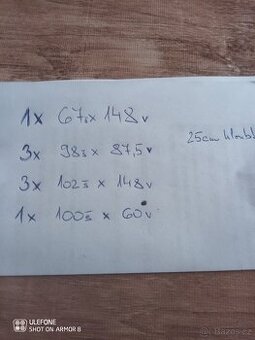 1x 67š x 148 v
3x 98š x 87,5 v
3x 102š x 148 v
1x 100š x 60 v
25cm hloub
ULEFONE
SHOT ON ARMOR 8